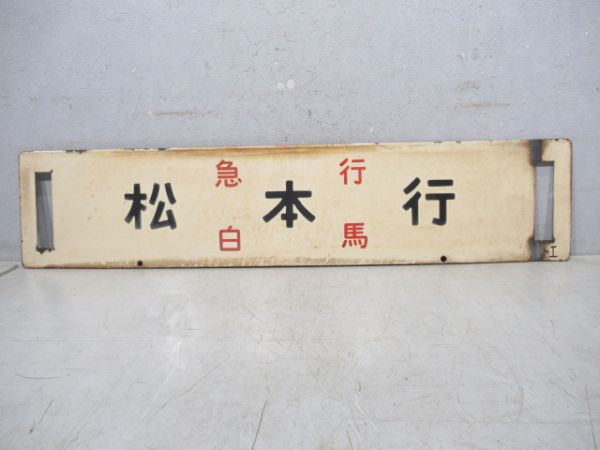 急行
松本行
白馬
エ